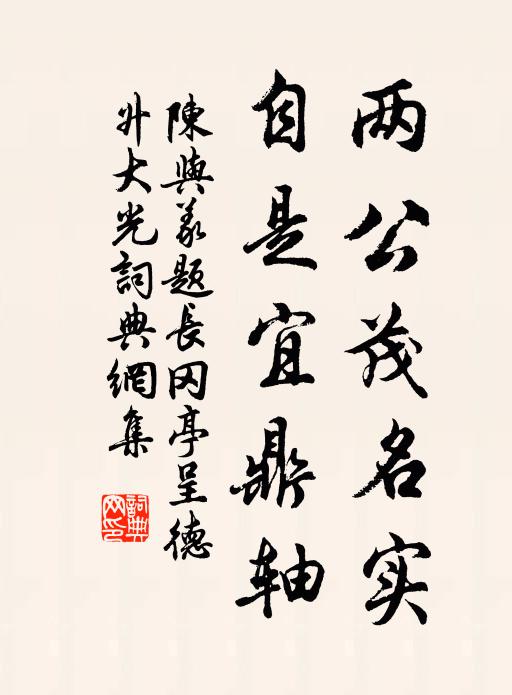 两公茂名实
自是宜鼎轴
陳與义题長冈亭呈德
升大光詞典網集
詞典
网印